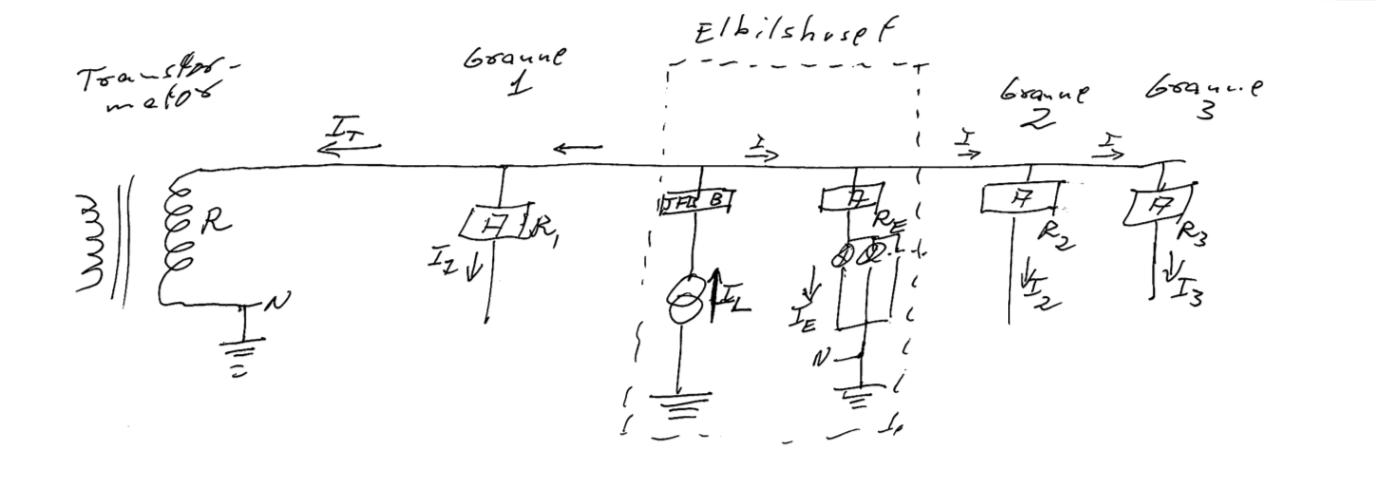 Elbilshuset
Transfor-
mator
Granne
1
Granne
2
Granne
3
I_T
I
I
I
R
A
R_1
I_1
JFL B
I_L
A
R_E
I_E
N
A
R_2
I_2
A
R_3
I_3
N